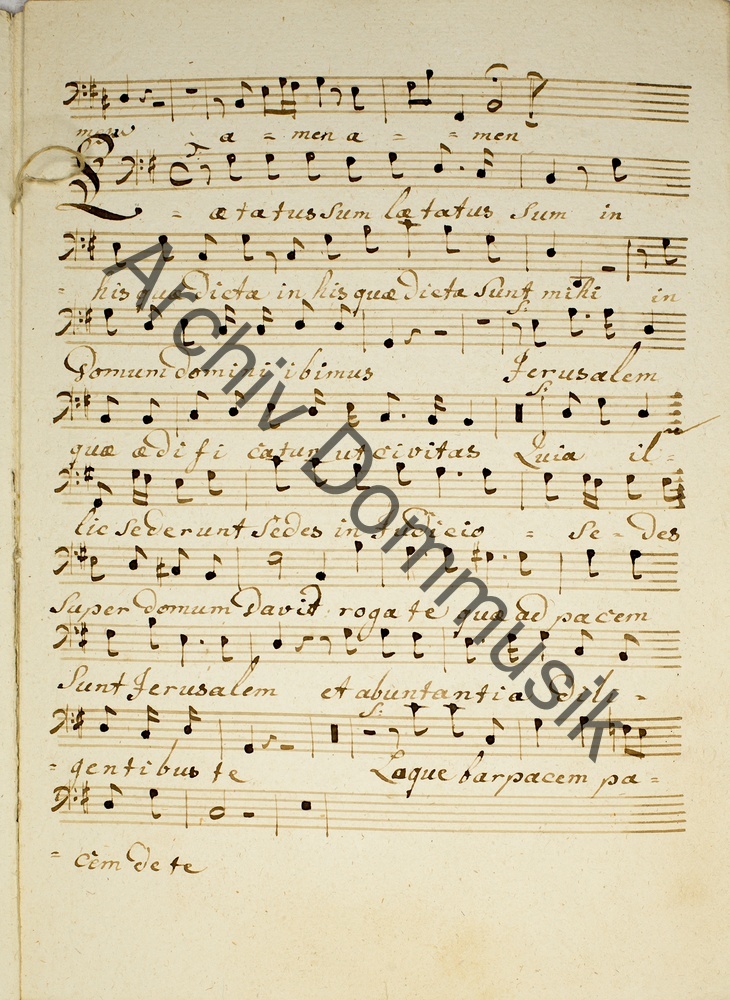 a = men a - = men
L = ætatus Sum lætatus Sum in
= his quæ dicta in his quæ dicta Sunt mihi in
Domum domini ibimus Jerusalem
quæ ædifi catur ut civitas Quia il =
lic Sederunt Sedes in Judicio = Se - des
Super domum David rogate quæ ad pacem
Sunt Jerusalem et abuntantia dili =
= gentibus te Loquebar pacem pa =
= cem de te
Archiv Dommusik